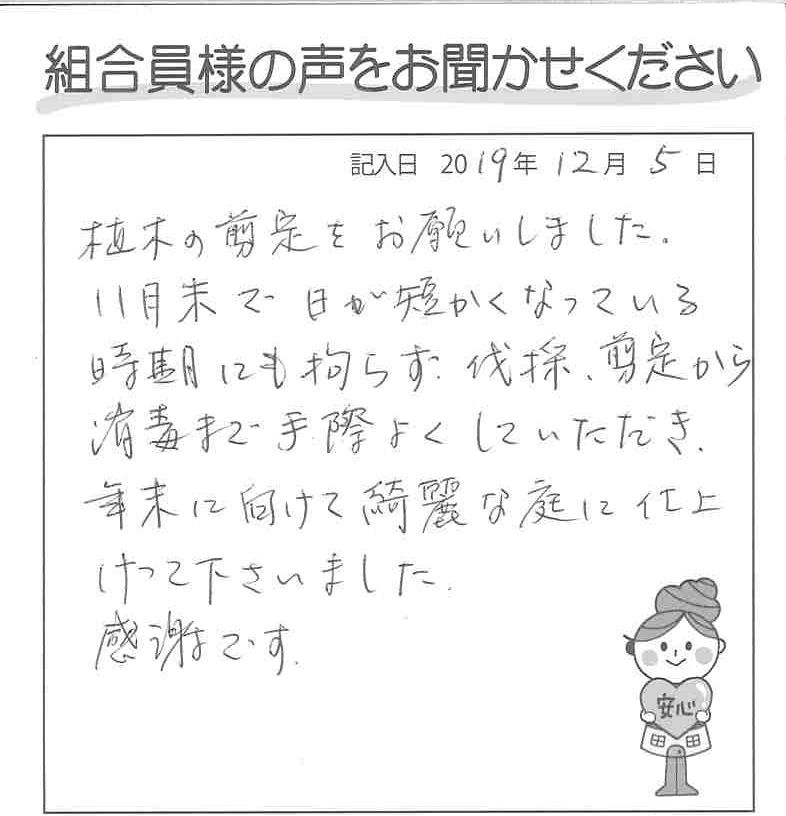 組合員様の声をお聞かせください
記入日 2019年 12月 5日
植木の剪定をお願いしました。
11月末で日が短かくなっている
時期にも拘らず、伐採、剪定から
消毒まで手際よくしていただき、
年末に向けて綺麗な庭に仕上
げって下さいました。
感謝です。
安心